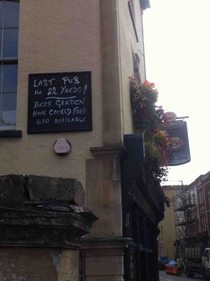 LAST PUB
FOR 22 YARDS!
BEER GARDEN
HOME COOKED FOOD
ALSO AVAILABLE